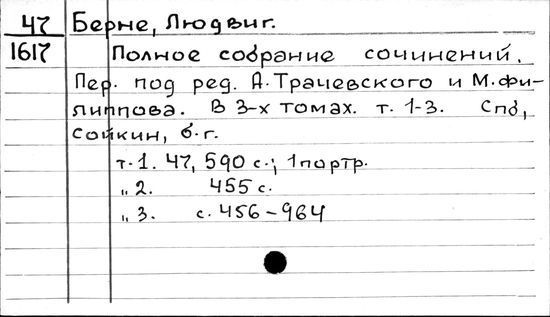 47 Берне, Людвиг.
1617 Полное собрание сочинений.
Пер. под ред. А. Трачевского и М. Фи-
липпова. В 3-х томах. т. 1-3. Спб,
Сойкин, б. г.
т. 1. 47, 590 с.; 1 портр.
„ 2. 455 с.
„ 3. с. 456-964